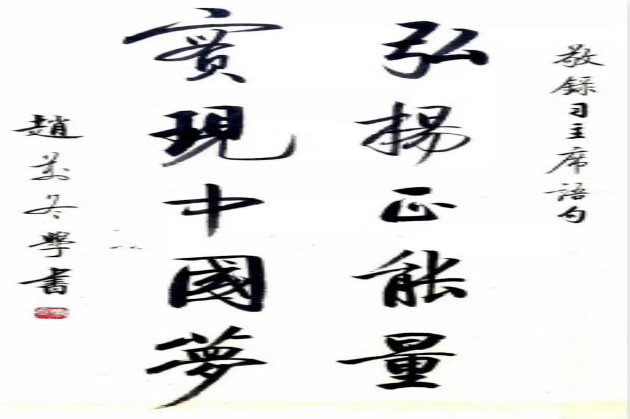 敬録习主席語句
弘揚正能量
實現中國夢
趙萬冬學書